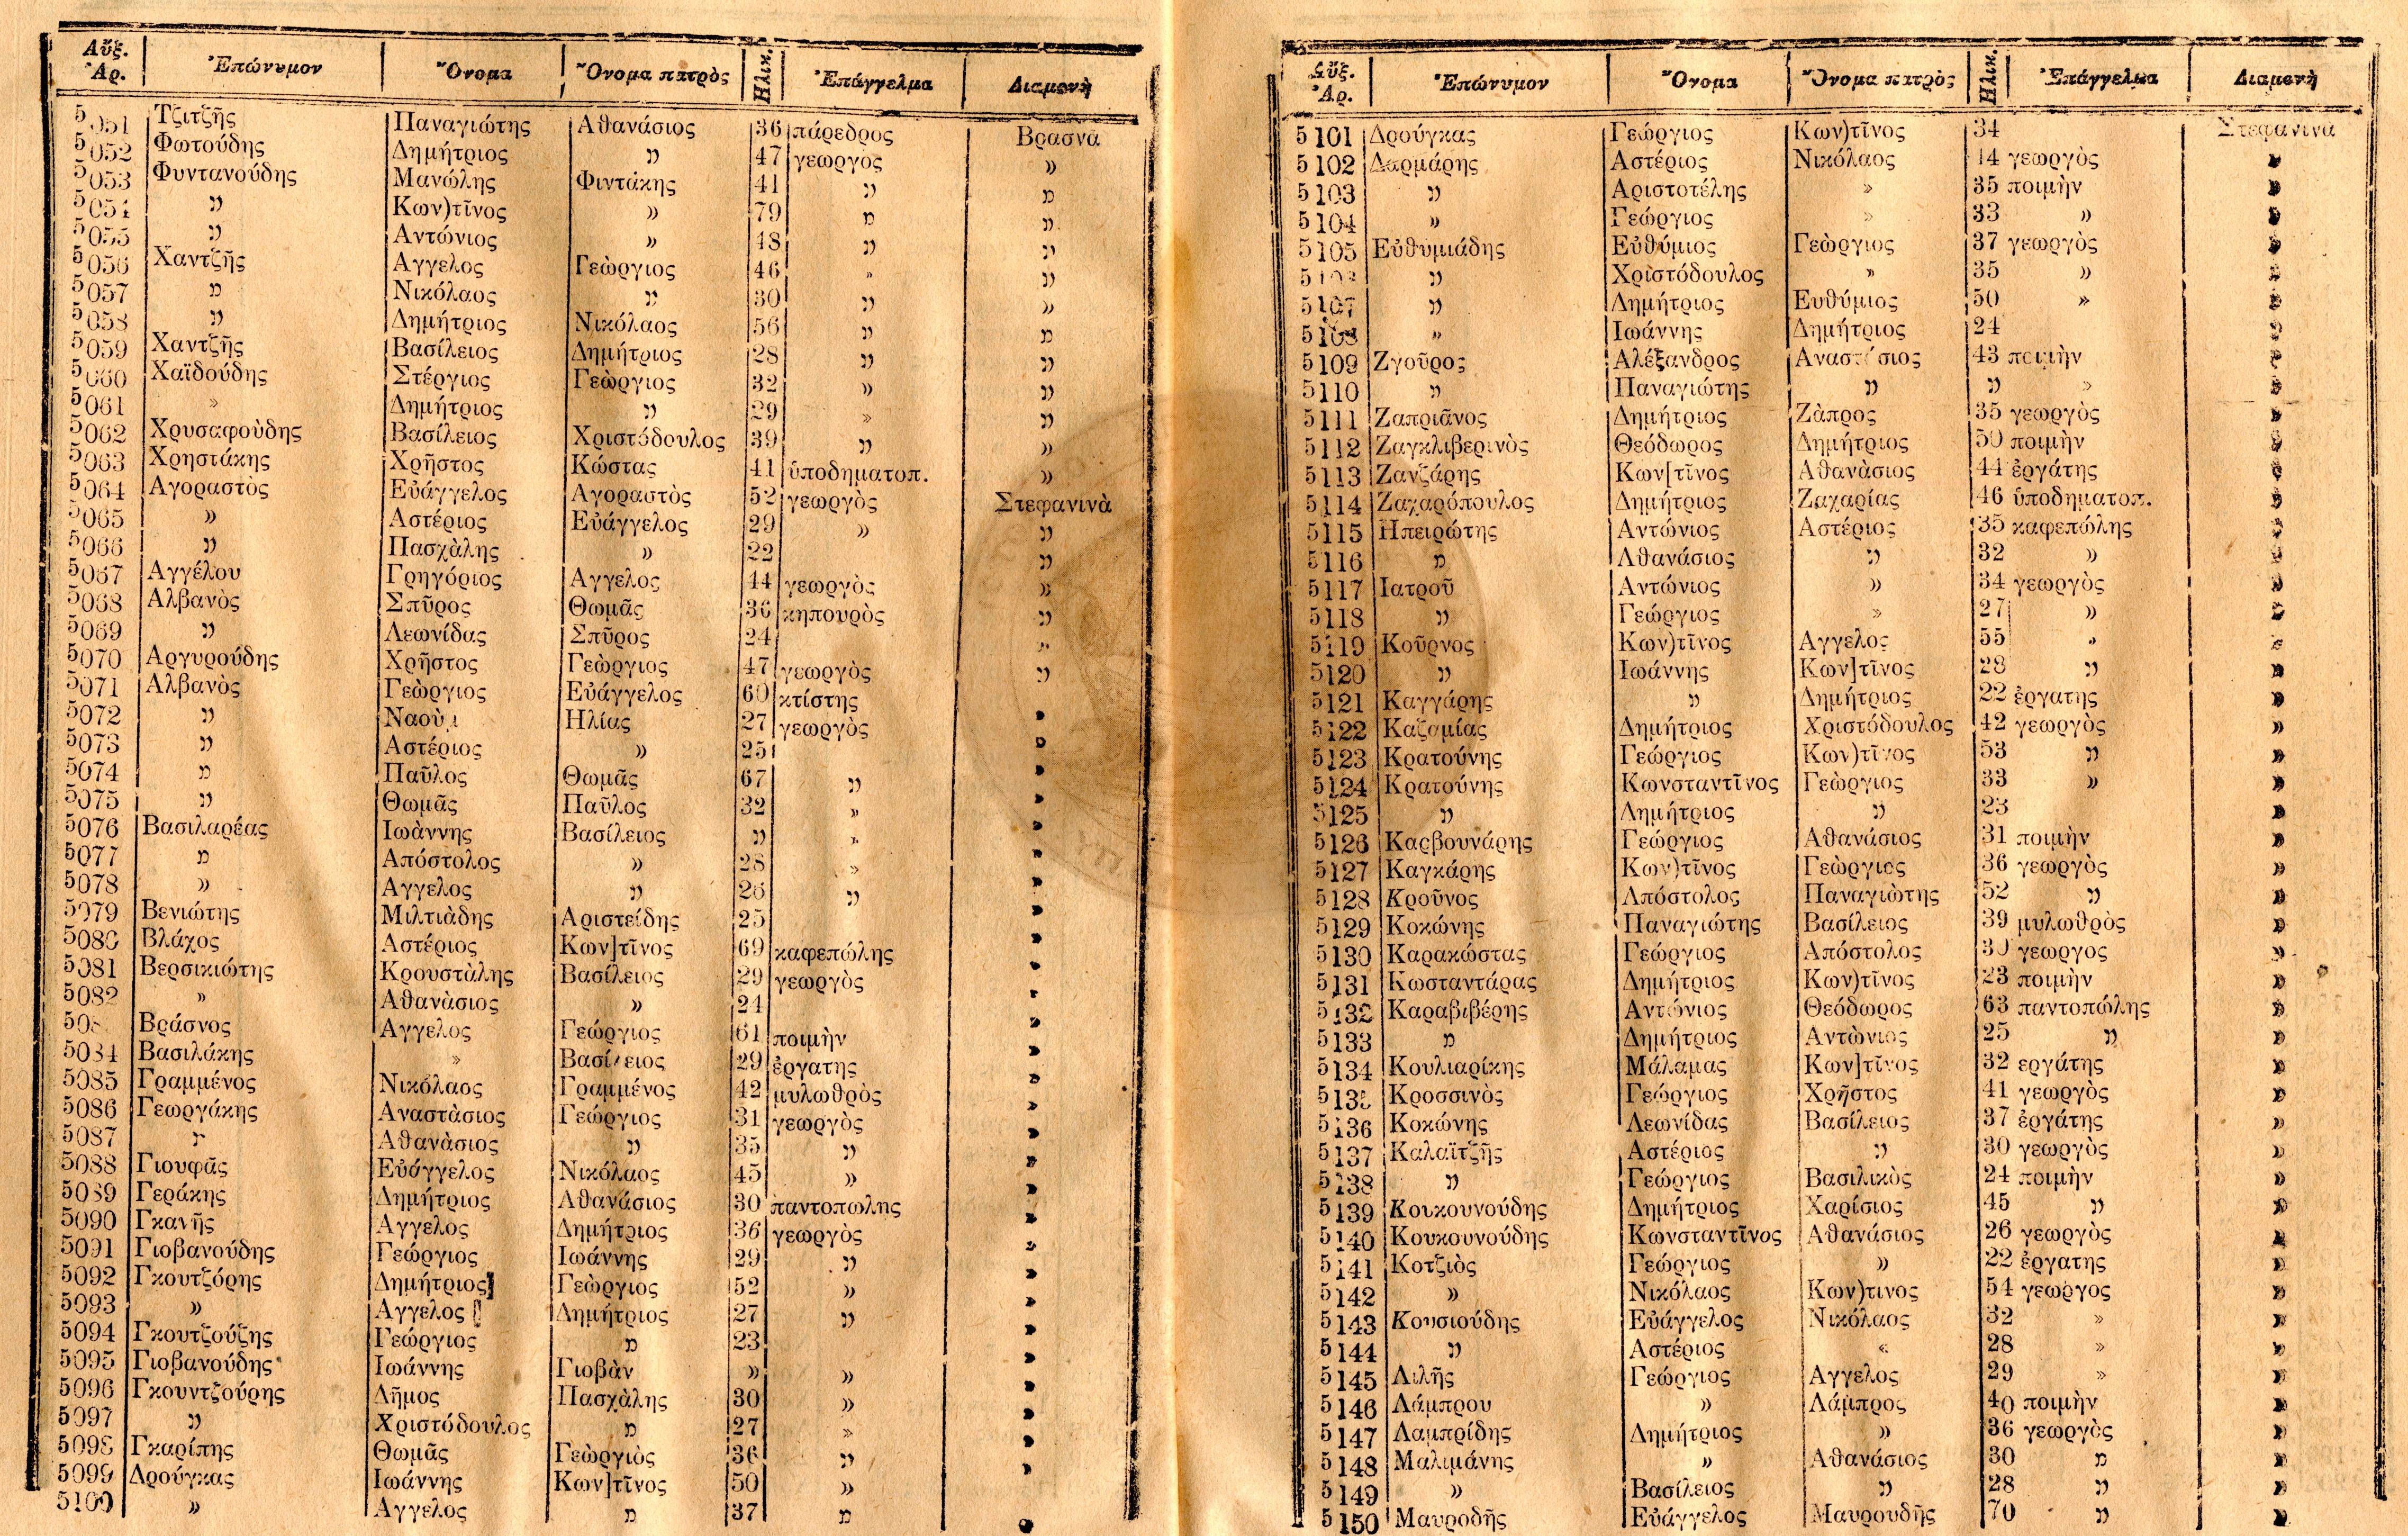 Αὔξ. Ἀρ. Ἐπώνυμον Ὄνομα Ὄνομα πατρὸς Ηλικ. Ἐπάγγελμα Διαμονὴ
5051 Τζιτζῆς Παναγιώτης Αθανάσιος 36 πάρεδρος Βρασνὰ
5052 Φωτούδης Δημήτριος » 47 γεωργὸς »
5053 Φυντανούδης Μανώλης Φιντάκης 41 » »
5054 » Κων)τῖνος » 79 » »
5055 » Αντώνιος » 48 » »
5056 Χαντζῆς Αγγελος Γεὼργιος 46 » »
5057 » Νικόλαος » 30 » »
5058 » Δημήτριος Νικόλαος 56 » »
5059 Χαντζῆς Βασίλειος Δημήτριος 28 » »
5060 Χαϊδούδης Στέργιος Γεὼργιος 32 » »
5061 » Δημήτριος » 29 » »
5062 Χρυσαφοὺδης Βασίλειος Χριστόδουλος 39 » »
5063 Χρηστάκης Χρῆστος Κώστας 41 ὑποδηματοπ. »
5064 Αγοραστὸς Εὐάγγελος Αγοραστὸς 52 γεωργὸς Στεφανινὰ
5065 » Αστέριος Εὐάγγελος 29 » »
5066 » Πασχὰλης » 22 »
5067 Αγγέλου Γρηγόριος Αγγελος 44 γεωργὸς »
5068 Αλβανὸς Σπῦρος Θωμᾶς 36 κηπουρὸς »
5069 » Λεωνίδας Σπῦρος 24 »
5070 Αργυρούδης Χρῆστος Γεὼργιος 47 γεωργὸς »
5071 Αλβανὸς Γεὼργιος Εὐάγγελος 60 κτίστης
5072 » Ναοὺμ Ηλίας 27 γεωργὸς »
5073 » Αστέριος » 25 »
5074 » Παῦλος Θωμᾶς 67 » »
5075 » Θωμᾶς Παῦλος 32 » »
5076 Βασιλαρέας Ιωὰννης Βασίλειος » » »
5077 » Απόστολος » 28 » »
5078 » Αγγελος » 26 » »
5079 Βενιώτης Μιλτιὰδης Αριστείδης 25 »
5080 Βλάχος Αστέριος Κων]τῖνος 69 καφεπώλης »
5081 Βερσικιώτης Κρουστὰλης Βασίλειος 29 γεωργὸς »
5082 » Αθανὰσιος » 24 »
508 Βράσνος Αγγελος Γεώργιος 61 ποιμὴν »
5084 Βασιλάκης » Βασίλειος 29 ἐργατης »
5085 Γραμμένος Νικόλαος Γραμμένος 42 μυλωθρὸς »
5086 Γεωργάκης Αναστὰσιος Γεώργιος 31 γεωργὸς »
5087 » Αθανὰσιος » 35 » »
5088 Γιουφᾶς Εὐάγγελος Νικόλαος 45 » »
5089 Γεράκης Δημήτριος Αθανάσιος 30 παντοπωλης »
5090 Γκανῆς Αγγελος Δημήτριος 36 γεωργὸς »
5091 Γιοβανούδης Γεώργιος Ιωάννης 29 » »
5092 Γκουτζόρης Δημήτριος Γεὼργιος 52 » »
5093 » Αγγελος Δημήτριος 27 » »
5094 Γκουτζούζης Γεώργιος » 23 »
5095 Γιοβανούδης Ιωάννης Γιοβὰν » » »
5096 Γκουντζούρης Δῆμος Πασχὰλης 30 » »
5097 » Χριστόδουλος » 27 » »
5098 Γκαρίπης Θωμᾶς Γεὼργιὸς 36 » »
5099 Δρούγκας Ιωάννης Κων]τῖνος 50 » »
5100 » Αγγελος » 37 » »
Αὔξ. Ἀρ. Ἐπώνυμον Ὄνομα Ὄνομα πατρὸς Ηλικ. Ἐπάγγελμα Διαμονὴ
5101 Δρούγκας Γεώργιος Κων)τῖνος 34 Στεφανινα
5102 Δαρμάρης Αστέριος Νικόλαος 44 γεωργὸς »
5103 » Αριστοτέλης » 35 ποιμὴν »
5104 » Γεώργιος » 33 » »
5105 Εὐθυμιάδης Εὐθύμιος Γεὼργιος 37 γεωργὸς »
5106 » Χριστόδουλος » 35 » »
5107 » Δημήτριος Ευθύμιος 50 » »
5108 » Ιωάννης Δημήτριος 24 »
5109 Ζγοῦρος Αλέξανδρος Αναστάσιος 43 ποιμὴν »
5110 » Παναγιώτης » » » »
5111 Ζαπριᾶνος Δημήτριος Ζὰπρος 35 γεωργὸς »
5112 Ζαγκλιβερινὸς Θεόδωρος Δημήτριος 50 ποιμὴν »
5113 Ζανζάρης Κων[τῖνος Αθανὰσιος 44 ἐργάτης »
5114 Ζαχαρόπουλος Δημήτριος Ζαχαρίας 46 ὑποδηματοπ. »
5115 Ηπειρώτης Αντώνιος Αστέριος 35 καφεπώλης »
5116 » Αθανάσιος » 32 » »
5117 Ιατροῦ Αντώνιος » 34 γεωργὸς »
5118 » Γεώργιος » 27 » »
5119 Κοῦρνος Κων)τῖνος Αγγελος 55 » »
5120 » Ιωάννης Κων]τῖνος 28 » »
5121 Καγγάρης » Δημήτριος 22 ἐργατης »
5122 Καζαμίας Δημήτριος Χριστόδουλος 42 γεωργὸς »
5123 Κρατούνης Γεώργιος Κων)τῖνος 53 » »
5124 Κρατούνης Κωνσταντῖνος Γεὼργιος 33 » »
5125 » Δημήτριος » 23 »
5126 Καρβουνάρης Γεώργιος Αθανάσιος 31 ποιμὴν »
5127 Καγκάρης Κων)τῖνος Γεὼργιος 36 γεωργὸς »
5128 Κροῦνος Απόστολος Παναγιὼτης 52 » »
5129 Κοκώνης Παναγιώτης Βασίλειος 39 μυλωθρὸς »
5130 Καρακώστας Γεώργιος Απόστολος 30 γεωργος »
5131 Κωσταντάρας Δημήτριος Κων)τῖνος 23 ποιμὴν »
5132 Καραβιβέρης Αντώνιος Θεόδωρος 63 παντοπώλης »
5133 » Δημήτριος Αντὼνιος 25 » »
5134 Κουλιαρίκης Μάλαμας Κων]τῖνος 32 εργάτης »
5135 Κροσσινὸς Γεώργιος Χρῆστος 41 γεωργὸς »
5136 Κοκώνης Λεωνίδας Βασίλειος 37 ἐργάτης »
5137 Καλαϊτζῆς Αστέριος » 30 γεωργὸς »
5138 » Γεώργιος Βασιλικὸς 24 ποιμὴν »
5139 Κουκουνούδης Δημήτριος Χαρίσιος 45 » »
5140 Κουκουνούδης Κωνσταντῖνος Αθανάσιος 26 γεωργὸς »
5141 Κοτζιὸς Γεώργιος » 22 ἐργατης »
5142 » Νικόλαος Κων)τινος 54 γεωργος »
5143 Κουσιούδης Εὐάγγελος Νικόλαος 32 » »
5144 » Αστέριος « 28 » »
5145 Λιλῆς Γεώργιος Αγγελος 29 » »
5146 Λάμπρου » Λάμπρος 40 ποιμὴν »
5147 Λαμπρίδης Δημήτριος » 36 γεωργὸς »
5148 Μαλιμάνης » Αθανάσιος 30 » »
5149 » Βασίλειος » 28 » »
5150 Μαυροδῆς Εὐάγγελος Μαυρουδῆς 70 » »